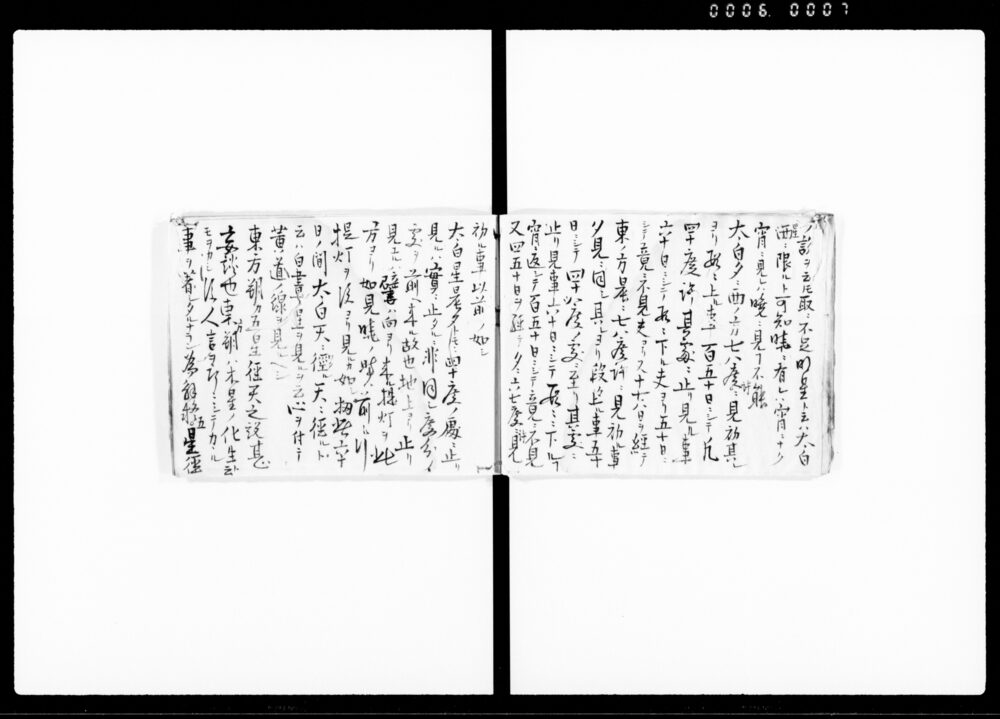 0006. 0007
ノ説ヲ云ヒ取ニ不足 明星ト云ハ太白
西ニ限ルト可知暁ニ有レハ宵ニナク
宵ニ見レハ暁ニ見ヿ不能
太白夕ニ西ノ方七八度許ニ見初其
ヨリ段々ニ上ル事百五十日ニシテ凡
四十度許其處ニ止リ見ル事
六十日ニシテ段々ニ下ル夫ヨリ五十日
シテ竟ニ不見夫ヨリ又十六日ヲ経テ
東ノ方晨ニ七八度許ニ見初ル事
夕見ニ同シ其レヨリ段々上ル事五十
日ニシテ四十八度ノ處ニ至リ其處ニ
止リ見事六十日ニシテ段々ニ下ルヿ
宵ニ返シテ百五十日ニシテ竟ニ不見
又四五十日ヲ経テ夕ニ六七度許見
初ル事以前ノ如シ
太白星晨夕共ニ四十度ノ處ニ止リ
見ルハ實ニ止タルニ非同シ度分ノ
處ヲ前ヘ来ル故也地上ヨリ止リ
見エル譬ハ向ヨリ来提灯ヲ此
方ヨリ如見暁ノ時ハ前ニ行
提灯ヲ後ヨリ見カ如シ拟此六十
日ノ間太白天ニ徑ル天ニ徑ルト
云ハ白晝ニ星ヲ見ルヲ云心ヲ付テ
黄道ノ線ヲ見ヘシ
東方朔カ五星徑天之説甚
妄談也東方朔ハ木星ノ化生云
モヲカシ後人言ヲ巧ニシテカヽル
事ヲ著シタルナラン為 五星徑